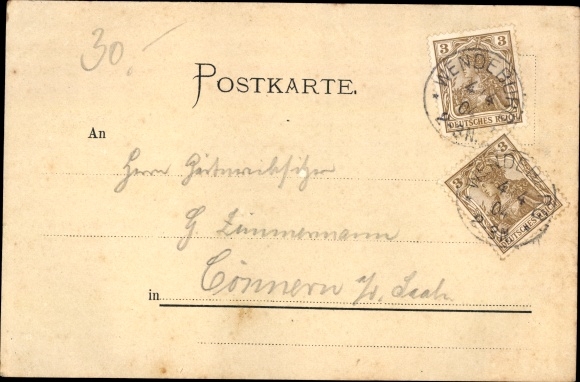 30.-
POSTKARTE.
3
WENDEBU
DEUTSCHES REICH
3 3
WENDEB
DEUTSCHES REICH
An
Herrn
G. Zimmermann
in Cönnern a/d. Saale